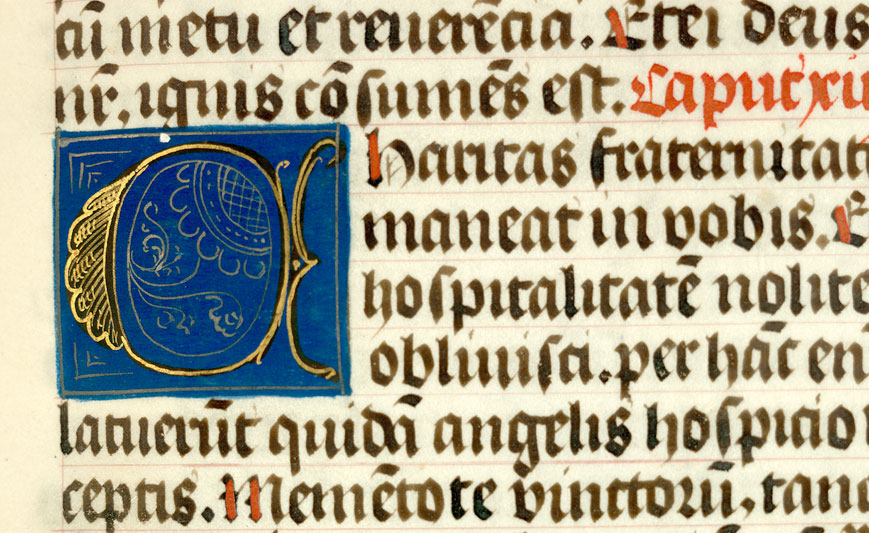 cū metu et reuerēcia. Etei deus
nr̄, ignis cōsumēs est. Caput xii
Charitas fraternitat
maneat in vobis. E
hospitalitatē nolite
obliuisci. per hāc en
latuerūt quidā angelis hospicio
ceptis. Memētote vinctorū, tanq